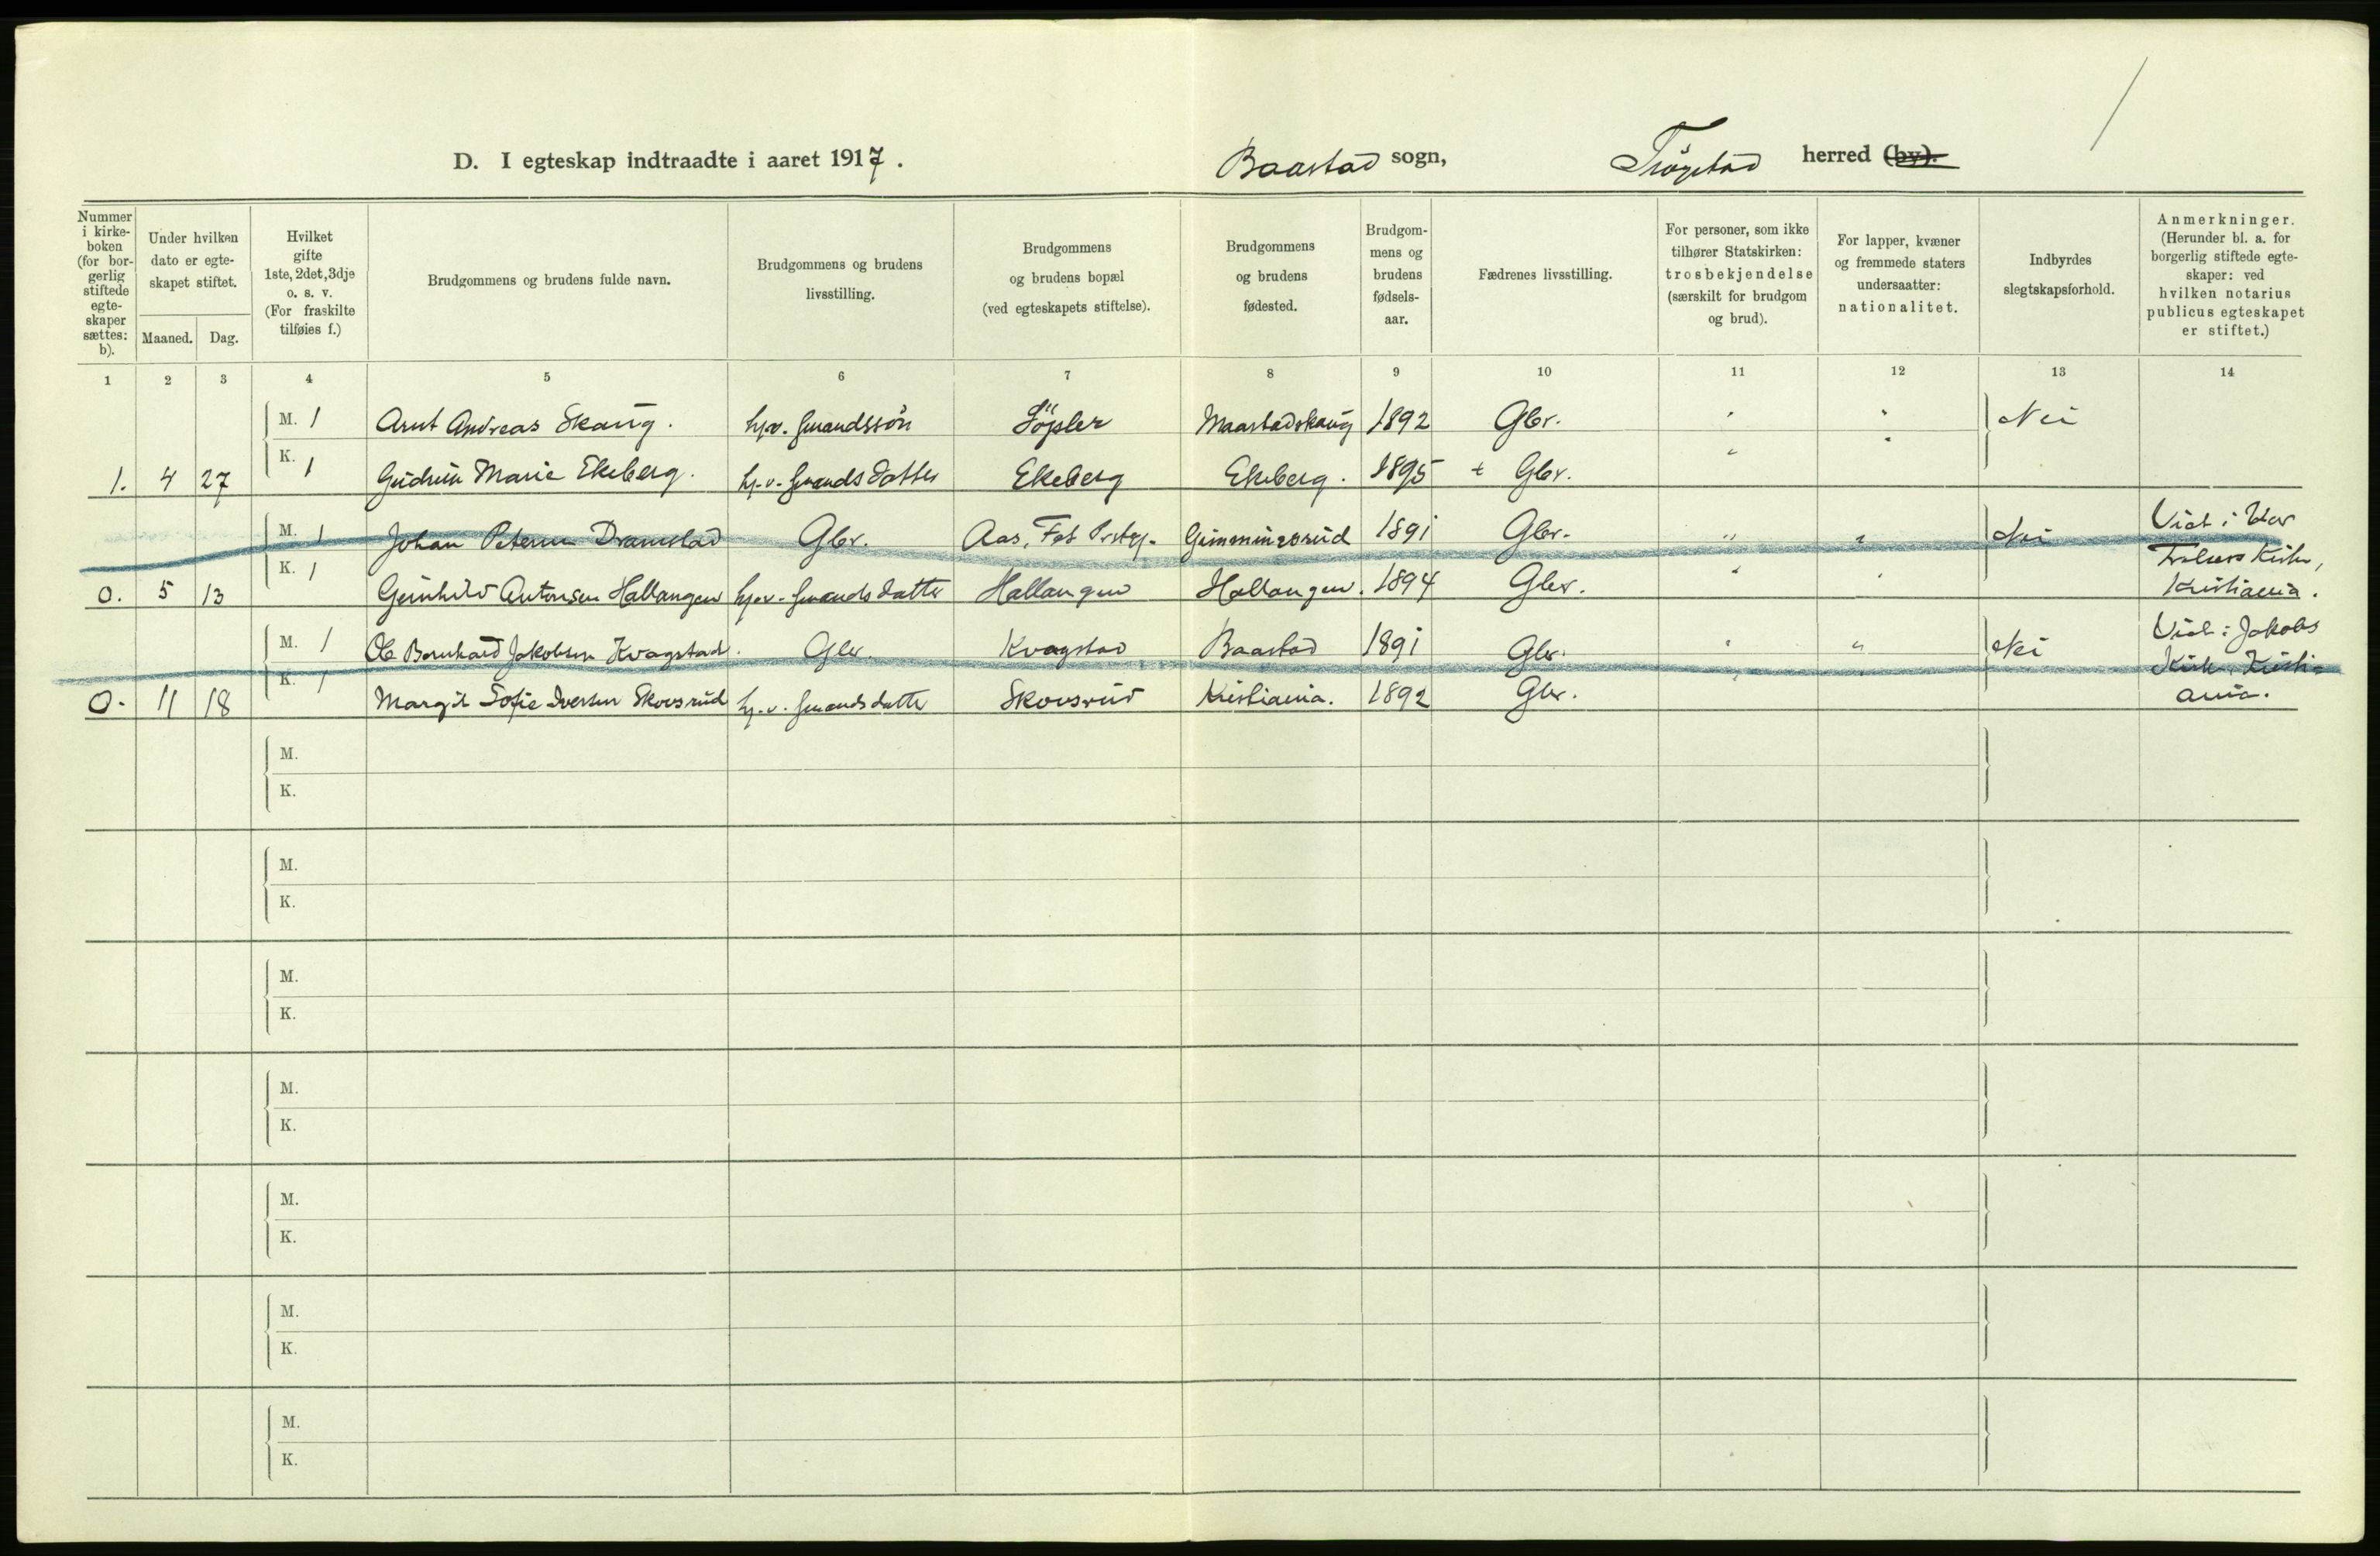 D. I egteskap indtraadte i aaret 1917. Baastad sogn, Trøgstad herred (by).
Nummer i kirke-boken (for bor-gerlig stiftede egte-skaper sættes: b).
Under hvilken dato er egte-skapet stiftet.
Maaned. Dag.
Hvilket gifte 1ste, 2det, 3dje o. s. v. (For fraskilte tilføies f.)
Brudgommens og brudens fulde navn.
Brudgommens og brudens livsstilling.
Brudgommens og brudens bopæl (ved egteskapets stiftelse).
Brudgommens og brudens fødested.
Brudgom-mens og brudens fødsels-aar.
Fædrenes livsstilling.
For personer, som ikke tilhører Statskirken: trosbekjendelse (særskilt for brudgom og brud).
For lapper, kvæner og fremmede staters undersaatter: nationalitet.
Indbyrdes slegtskapsforhold.
Anmerkninger. (Herunder bl. a. for borgerlig stiftede egte-skaper: ved hvilken notarius publicus egteskapet er stiftet.)
1 2 3 4 5 6 7 8 9 10 11 12 13 14
M. 1 Arnt Andreas Skaug. hjv. gmandssøn Maarstadskaug 1892 Gbr. " " Nei
1. 4 27 K. 1 Gudrun Marie Ekeberg. hj.v. gmandsdatter Ekeberg Ekeberg. 1895 + Gbr. " "
M. 1 Johan Petersen Dramstad Gbr. Aas, Fet Prstgj. Gimmingsrud 1891 Gbr. " " Nei Viet i
0. 5 13 K. 1 Gunhild Antonsen Hallangen hj.v. gmandsdatter Hallangen Hallangen. 1894 Gbr. " " Kristiania.
M. 1 Ole Bernhard Jakobsen Kvagstad. Gbr. Kvagstad Baastad 1891 Gbr. " " Nei Viet i Jakobs
Kirke, Kristi-
0. 11 18 K. 1 Margit Sofie Iversen Skovsrud hj.v. gmandsdatter Skovsrud Kristiania. 1892 Gbr. " ania.
M.
K.
M.
K.
M.
K.
M.
K.
M.
K.
M.
K.
M.
K.